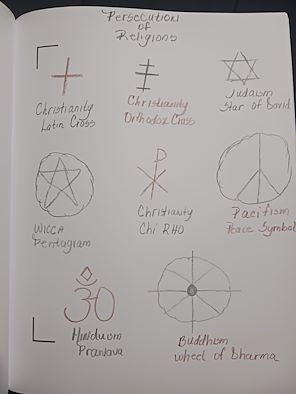 Persecution
of
Religions
Christianity
Latin Cross
Christianity
Orthodox Cross
Judaism
Star of David
WICCA
Pentagram
Christianty
Chi RHO
Pacifism
Peace Symbol
Hinduism
Pranava
Buddhism
wheel of Dharma